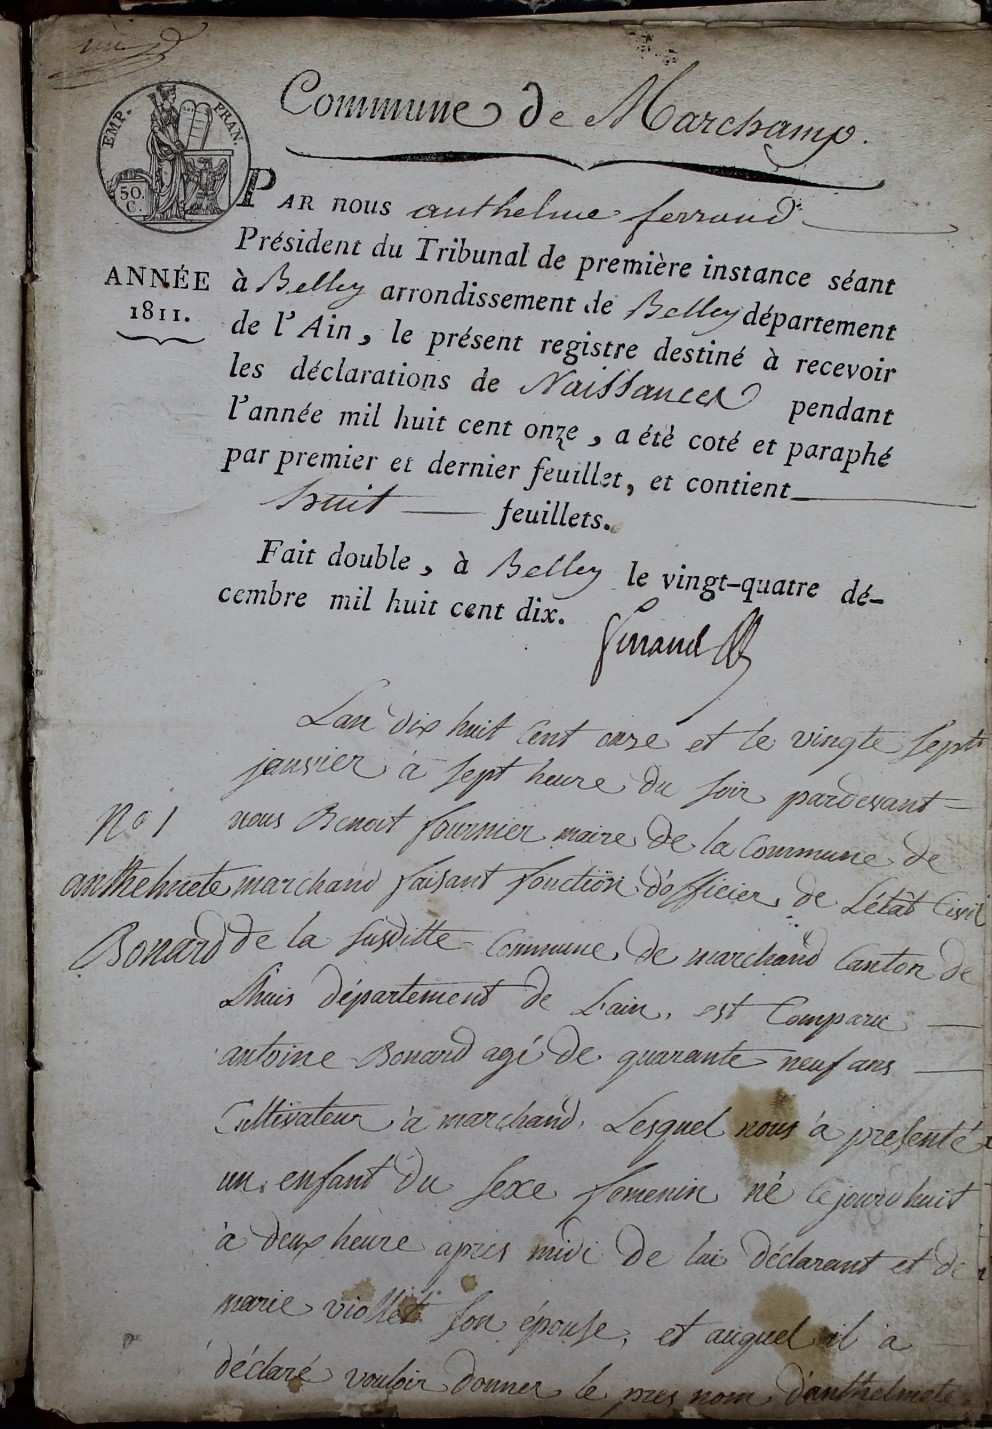 un
EMP. FRAN.
50. C.
Commune de Marchamp.
ANNÉE
1811.
PAR nous anthelme ferrand
Président du Tribunal de première instance séant
à Belley arrondissement de Belley département
de l'Ain, le présent registre destiné à recevoir
les déclarations de Naissances pendant
l'année mil huit cent onze, a été coté et paraphé
par premier et dernier feuillet, et contient
huit feuillets.
Fait double, à Belley le vingt-quatre dé-
cembre mil huit cent dix.
ferrand
Lan dix huit Cent onze et le vingte sept
janvier à sept heure du soir pardevant
nous Benoit fournier maire de la Commune de
N° 1
anthelmete
Bonard
marchand faisant fonction d'officier de L'état Civil
de la susditte Commune de marchand Canton de
Lhuis département de Lain, est Comparu
antoine Bonard agé de quarante neuf ans
Cultivateur à marchand, Lesquel nous à presenté
un enfant du sexe femenin né cejourdhuit
à deux heure apres midi de lui déclarant et de
marie viollet son épouse, et auquel il à
déclaré vouloir donner le pres nom d'anthelmete